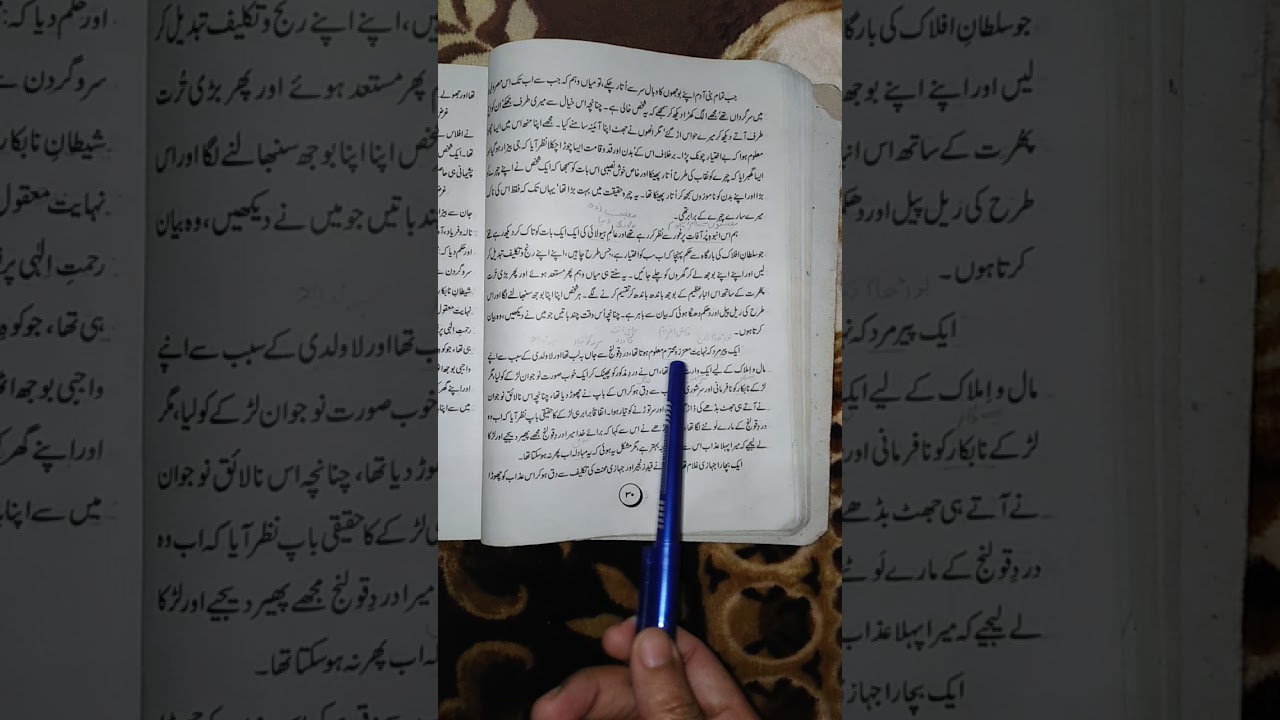 جب تمام بنی آدم اپنے بوجھوں کا وبال سر سے اُتار چکے، تو میاں وہم کہ جب سے اب تک اس مصروفی
میں سرگرداں تھے مجھے الگ کھڑا دیکھ کر سمجھے کہ یہ شخص خالی ہے۔ چنانچہ اس خیال سے میری طرف جھکے ان کو اپنی
طرف آتے دیکھ کر میرے حواس اڑ گئے، مگر انھوں نے جھٹ اپنا آئینہ سامنے کیا۔ مجھے اپنا منھ اس میں ایسا چھوٹا
معلوم ہوا کہ بے اختیار چونک پڑا۔ برخلاف اس کے بدن اور قد و قامت ایسا چوڑا چکلا نظر آیا کہ جی بیزار ہو گیا اور
ایسا گھبرایا کہ چہرے کو نقاب کی طرح اُتار پھینکا اور خاص خوش نصیبی اس بات کو سمجھا کہ ایک شخص نے اپنے چہرے کو
بڑا اور اپنے بدن کو ناموزوں سمجھ کر اُتار پھینکا تھا۔ یہ چہرہ حقیقت میں بہت بڑا تھا، یہاں تک کہ فقط اس کی ناک
میرے سارے چہرے کے برابر تھی۔
ہم اس انبوہ پُر آفات پر غور سے نظر کر رہے تھے اور عالمِ ہیولائی کی ایک ایک بات کو تاک تاک کر دیکھ رہے تھے
جو سلطانِ افلاک کی بارگاہ سے حکم پہنچا کہ اب سب کو اختیار ہے، جس طرح چاہیں، اپنے اپنے رنج و تکلیف تبدیل کر
لیں اور اپنے اپنے بوجھ لے کر گھروں کو چلے جائیں۔ یہ سنتے ہی میاں وہم پھر مستعد ہوئے اور پھر بڑی تُرت
پھُرت کے ساتھ اس انبارِ عظیم کے بوجھ باندھ باندھ کر تقسیم کرنے لگے۔ ہر شخص اپنا اپنا بوجھ سنبھالنے لگا اور اس
طرح کی ریل پیل اور دھکم دھکا ہوئی کہ بیان سے باہر ہے۔ چنانچہ اُس وقت چند باتیں جو میں نے دیکھیں، وہ بیان
کرتا ہوں۔
ایک پیر مرد کہ نہایت معزز و محترم معلوم ہوتا تھا، دردِ قولنج سے جاں بہ لب تھا اور لاولدی کے سبب سے اپنے
مال و املاک کے لیے ایک وارث تھا، اس نے دردِ مذکور کو پھینک کر ایک خوب صورت نوجوان لڑکے کو لیا، مگر
لڑکے نابکار کو نافرمانی اور سرشوری سبب سے دِق ہو کر اس کے باپ نے چھوڑ دیا تھا، چنانچہ اس نالائق نوجوان
نے آتے ہی جھٹ بڈھے کی اور سر توڑنے کو تیار ہوا۔ اتفاقاً برابر ہی لڑکے کا حقیقی باپ نظر آیا کہ اب وہ
دردِ قولنج کے مارے لوٹنے لگا تھا بڈھے نے اس سے کہا کہ برائے خدا میرا دردِ قولنج مجھے پھیر دیجیے اور لڑکا
لے لیجیے کہ میرا پہلا عذاب اس سے بہتر ہے، مگر مشکل یہ ہوئی کہ یہ مبادلہ اب پھر نہ ہو سکتا تھا۔
ایک بچارا جہازی غلام تھا نے قیدِ زنجیر اور جہازی محنت کی تکلیف سے دِق ہو کر اس عذاب کو چھوڑا
۳۰